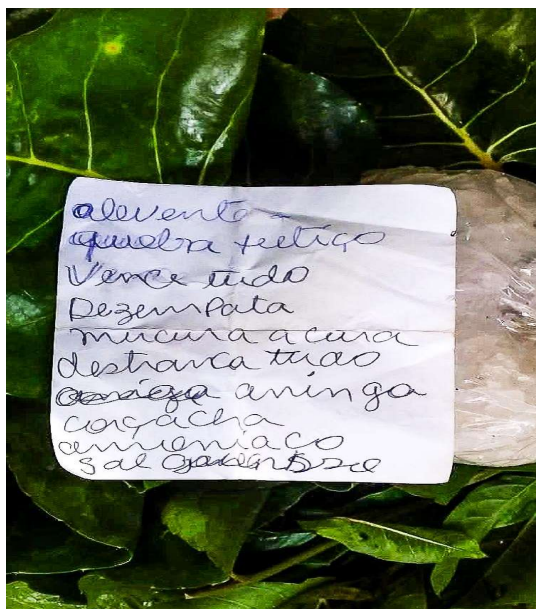 alevente
quebra feitiço
Vence tudo
Dezempata
mucura a cara
destranca tudo
aninga
cagacha
amoniaco
sal